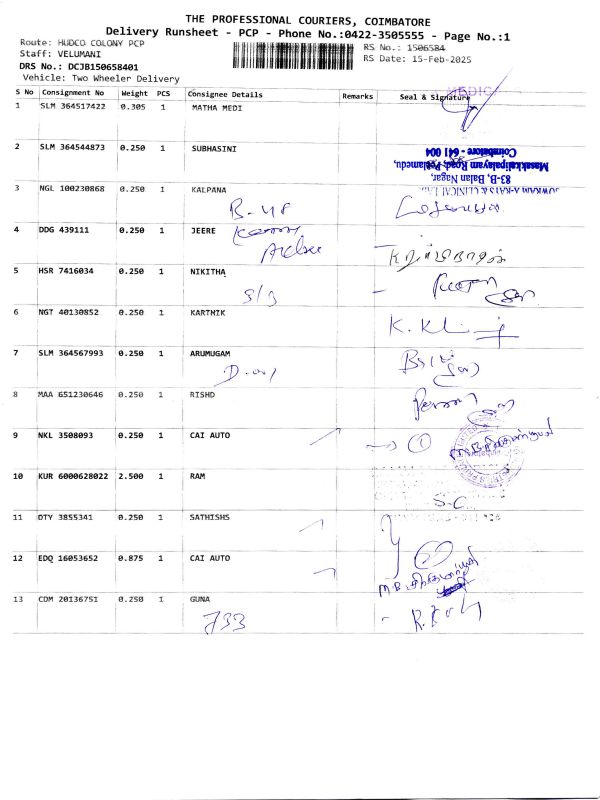 THE PROFESSIONAL COURIERS, COIMBATORE
Delivery Runsheet - PCP - Phone No.:0422-3505555 - Page No.:1
Route: HUDCO COLONY PCP
Staff: VELUMANI
DRS No.: DCJB150658401
Vehicle: Two Wheeler Delivery
RS No.: 1506584
RS Date: 15-Feb-2025
S No Consignment No Weight PCS Consignee Details Remarks Seal & Signature
1 SLM 364517422 0.305 1 MATHA MEDI
MEDICA
2 SLM 364544873 0.250 1 SUBHASINI
83-B, Balan Nagar,
Masakkalipalayam Road, Peelamedu,
Coimbatore - 641 004
3 NGL 100230868 0.250 1 KALPANA
B-48
4 DDG 439111 0.250 1 JEERE
5 HSR 7416034 0.250 1 NIKITHA
S/3
6 NGT 40130852 0.250 1 KARTHIK
7 SLM 364567993 0.250 1 ARUMUGAM
8 MAA 651230646 0.250 1 RISHD
9 NKL 3508093 0.250 1 CAI AUTO
1
10 KUR 6000628022 2.500 1 RAM
S-C
11 OTY 3855341 0.250 1 SATHISHS
12 EDQ 16053652 0.875 1 CAI AUTO
13 CDM 20136751 0.250 1 GUNA
733